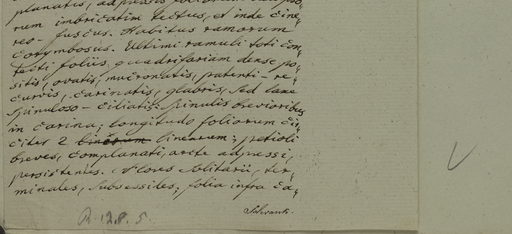 planatis, adpressis foliorum
rum imbricatim tectus, et inde cine,
reo-fuscus. Habitus ramorum
corymbosus. Ultimi ramuli toti con,
tecti foliis, quadrifariam dense po,
sitis, ovatis, mucronatis, patenti-re,
curvis, carinatis, glabris, sed laxe
spinuloso-ciliatis: spinulis brevioribus
in carina; longitudo foliorum cir,
citer 2 linearum; petioli
breves, complanati, arcte adpressi,
persistentes. Flores solitarii, ter,
minales, subsessiles; folia infra ca,
R. 12. 8. 5.